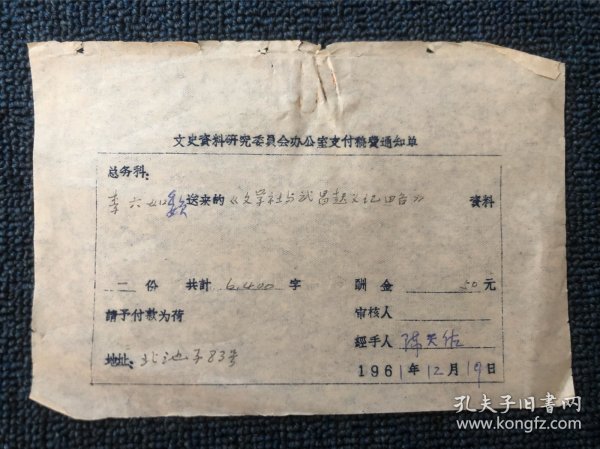 文史資料研究委員会办公室支付稿费通知单
总务科:
李六如 送来的《文学社与武昌起义纪回各》 資料
二 份 共計 6,400 字 酬金 50 元
請予付款为荷 审核人
經手人 陈天佑
地址: 北池子83号
1961年12月19日
孔夫子旧书网
www.kongfz.com